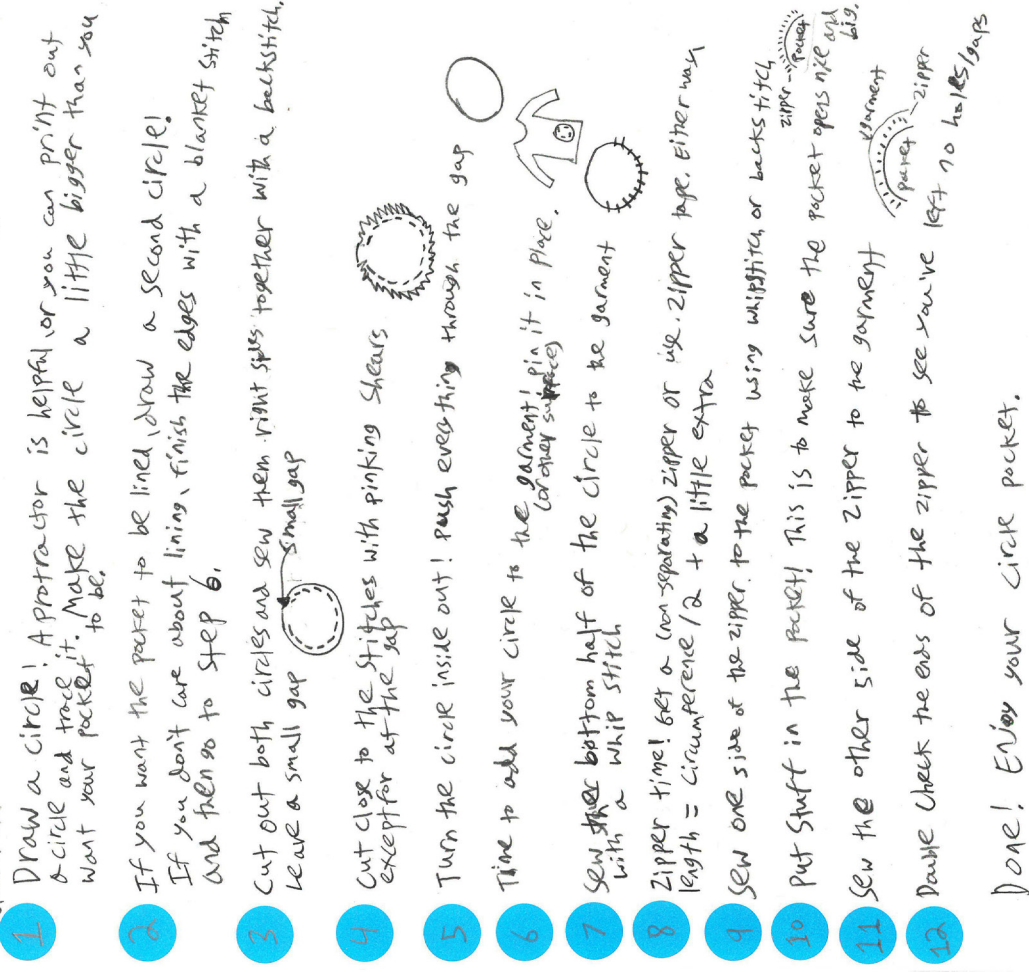 1 Draw a circle! A protractor is helpful, or you can print out
a circle and trace it. Make the circle a little bigger than you
want your pocket to be.
2 If you want the pocket to be lined, draw a second circle!
If you don't care about lining, finish the edges with a blanket stitch
and then go to step 6.
3 Cut out both circles and sew them right sides together with a backstitch.
Leave a small gap
small gap
4 Cut close to the stitches with pinking shears
except for at the gap
5 Turn the circle inside out! Push everything through the gap
6 Time to add your circle to the garment! Pin it in place.
(or other surface)
7 Sew the bottom half of the circle to the garment
with a whip stitch
8 Zipper time! Get a (non-separating) zipper or use zipper tape. Either way,
length = circumference / 2 + a little extra
9 Sew one side of the zipper to the pocket using whipstitch or backstitch
zipper
pocket
10 Put stuff in the pocket! This is to make sure the pocket opens nice and
big.
11 Sew the other side of the zipper to the garment
garment
pocket
zipper
12 Double check the ends of the zipper to see you've left no holes/gaps
Done! Enjoy your circle pocket.